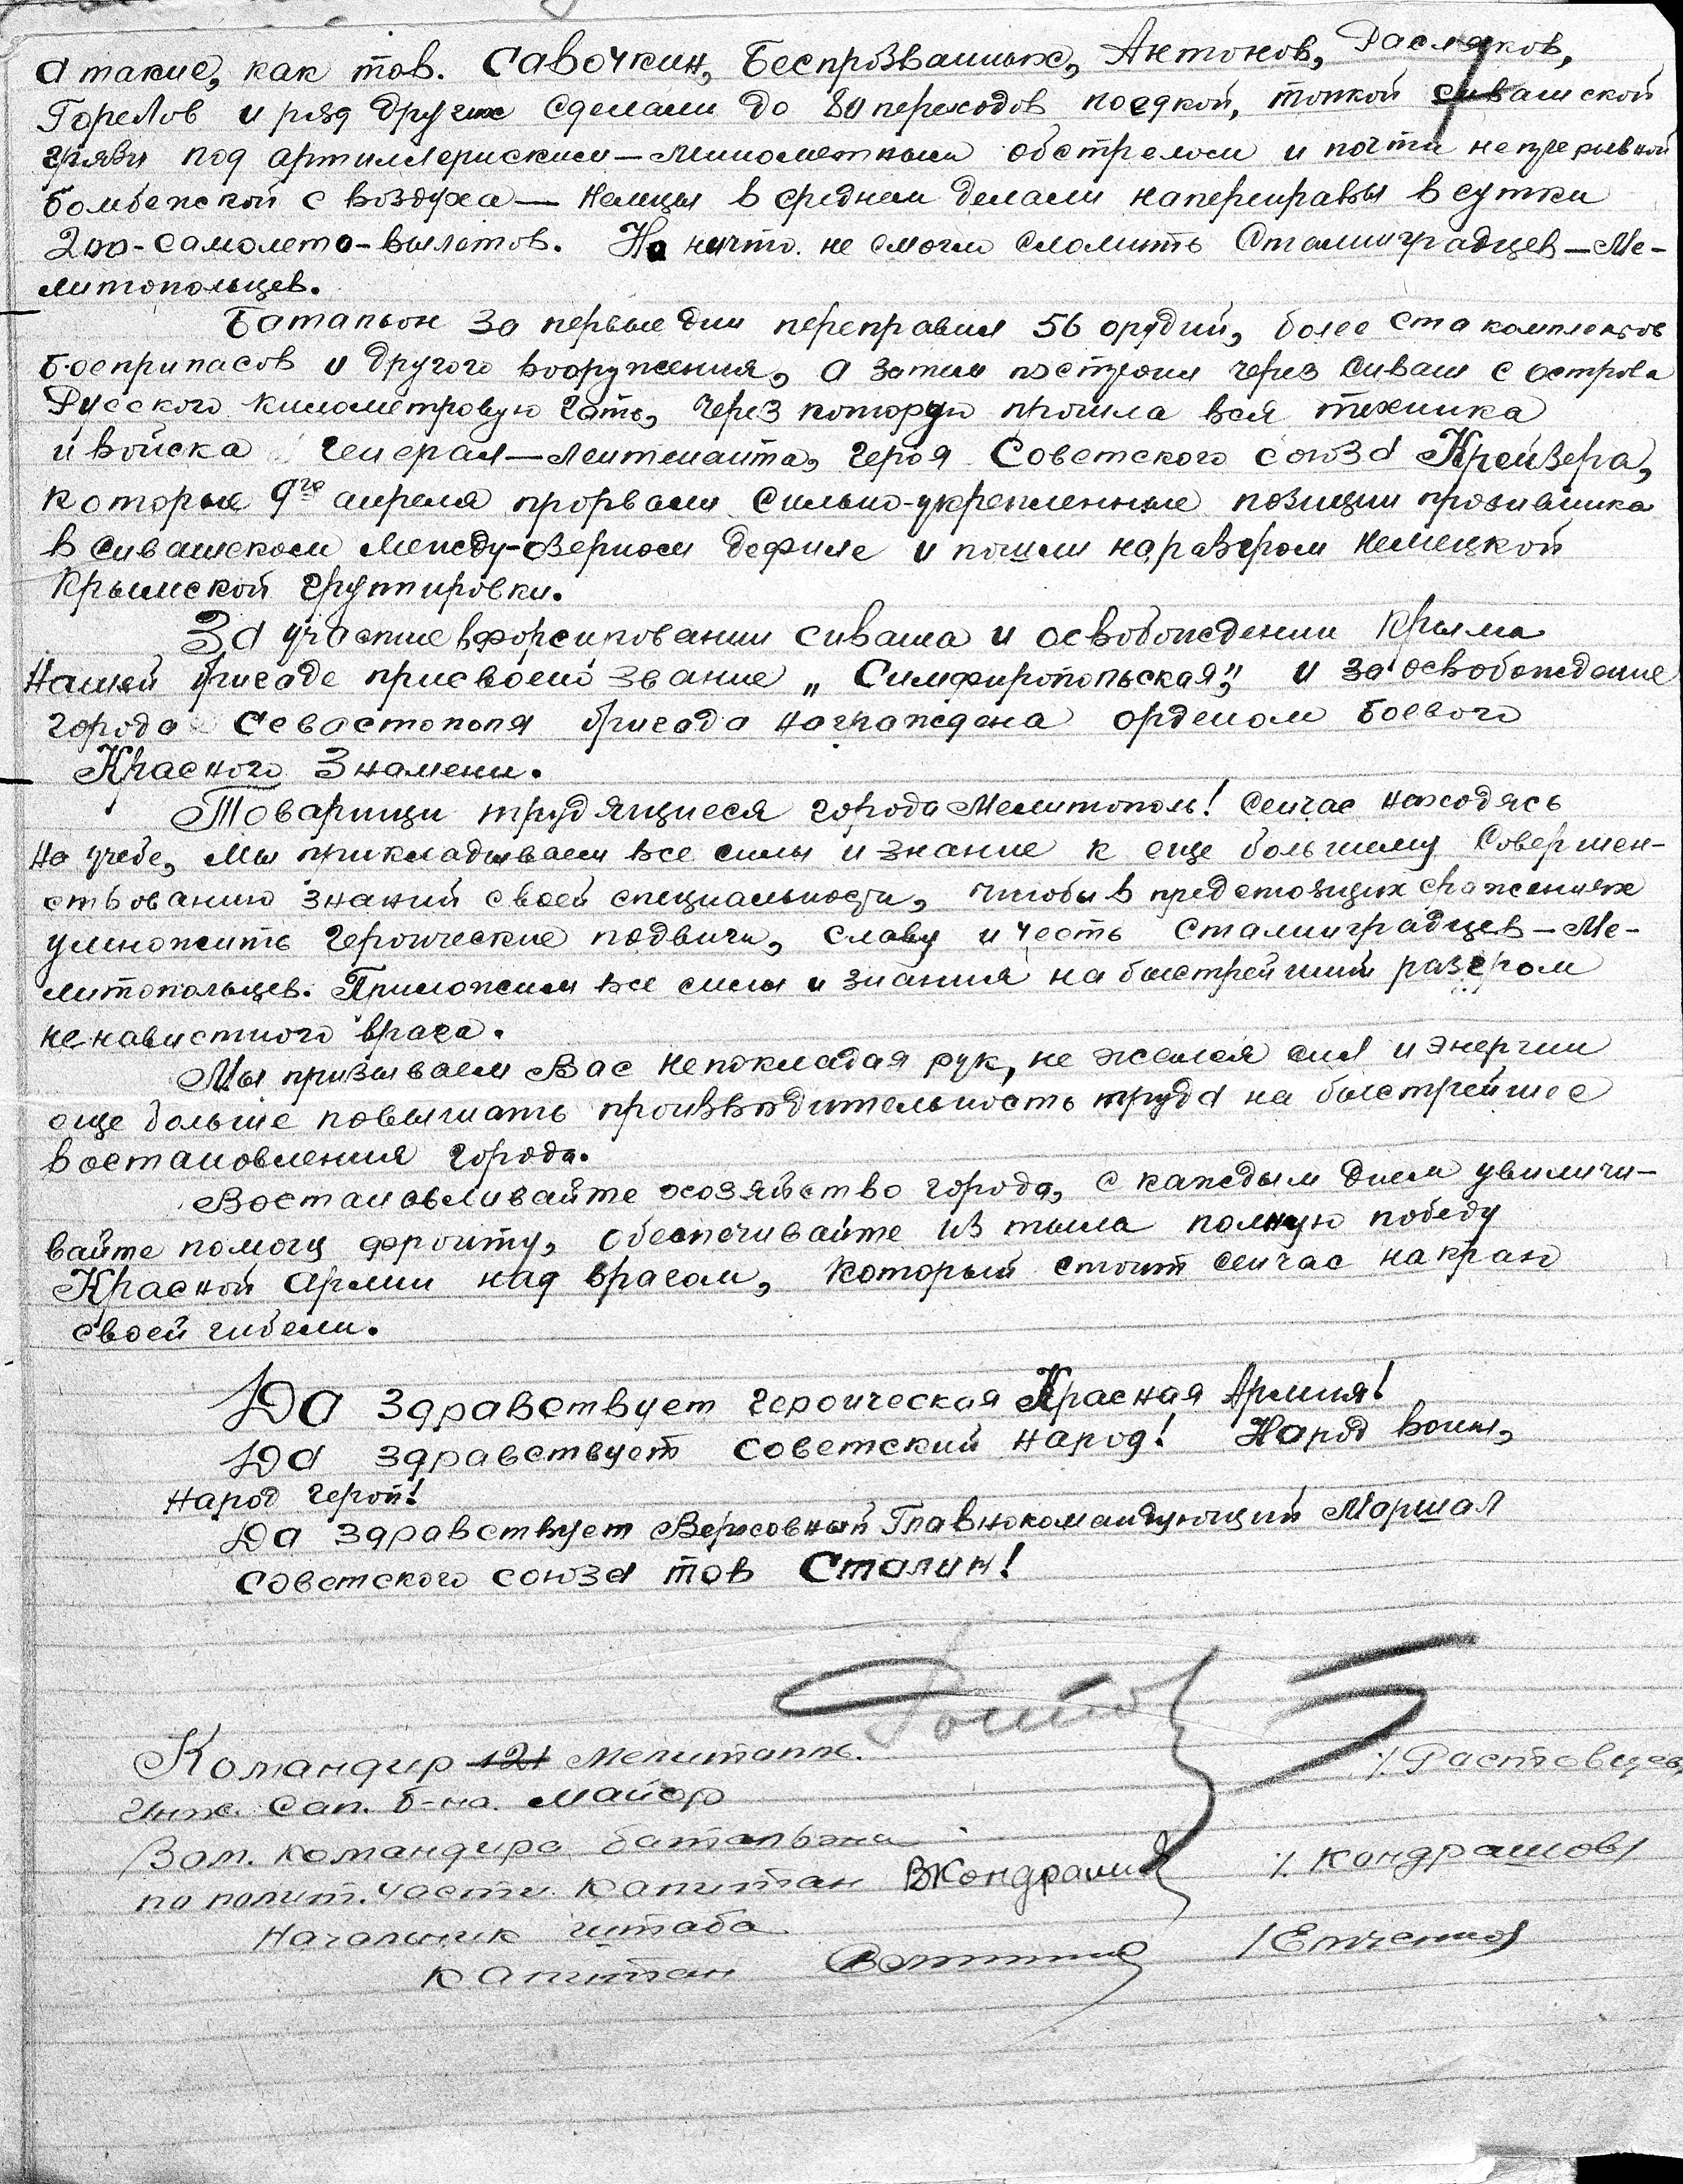 а такие, как тов. Савочкин, Беспрозванных, Антонов, Расляков,
Горелов и ряд других сделали до 80 переходов по едкой, топкой сивашской
грязи под артиллерискием – минометным обстрелом и почти непрерывной
бомбежской с воздуха — немцы в среднем делали на переправы в сутки
200 - самолето-вылетов. Но ничто не смогло сломить Сталинградцев – Ме-
литопольцев.
Батальон за первые дни переправил 56 орудий, более ста комплектов
боеприпасов и другого вооружения, а затем построил через Сиваш с острова
Русского километровую гать, через которую прошла вся техника
и войска генерал – лейтенанта, героя Советского союза Крейзера,
которые 9го апреля прорвали сильно-укрепленные позиции противника
в сивашском между-озерном дефиле и пошли на разгром немецкой
крымской группировки.
За участие в форсировании сиваша и освобождении Крыма
нашей бригаде присвоено звание „Симфиропольская" и за освобождение
города Севастополя бригада награждена орденом боевого
Красного Знамени.
Товарищи трудящиеся города Мелитополь! Сейчас находясь
на учебе, мы прикладываем все силы и знание к еще большему совершен-
ствованию знаний своей специальности, чтобы в предстоящих сражениях
умножить героические подвиги, славу и честь Сталинградцев – Ме-
литопольцев. Приложим все силы и знания на быстрейший разгром
ненавистного врага.
Мы призываем Вас непокладая рук, не жалея сил и энергии
еще больше повышать производительность труда на быстрейшее
востановления города.
Востановливайте хозяйство города, с каждым днем увиличи-
вайте помощ фронту, обеспечивайте из тыла полную победу
Красной армии над врагом, который стоит сейчас на краю
своей гибели.
Да здравствует героическая Красная Армия!
Да здравствует советский народ! Народ воин,
народ герой!
Да здравствует Верховный Главнокомандующий Маршал
советского союза тов Сталин!
Командир 121 Мелитопль.
Инж. Сап. б-на. майор /. Растовцев/
Зам. командира батальона
по полит. части. капитан ВКондрашов /. Кондрашов/
Начальник штаба
капитан